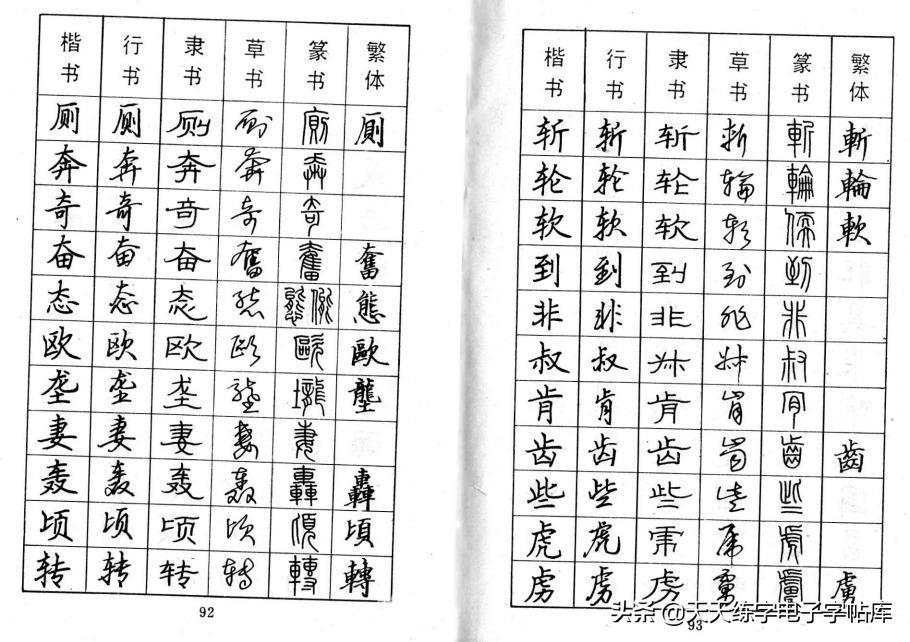 楷书 行书 隶书 草书 篆书 繁体
厕 厕 厕 厕 厠 厠
奔 奔 奔 奔 奔
奇 奇 奇 奇 奇
奋 奋 奋 奮 奮 奮
态 态 态 态 態 態
欧 欧 欧 欧 歐 歐
垄 垄 垄 垄 壠 壟
妻 妻 妻 妻 妻
轰 轰 轰 轰 轟 轟
顷 顷 顷 顷 頃 頃
转 转 转 转 轉 轉
92
楷书 行书 隶书 草书 篆书 繁体
斩 斩 斩 斩 斬 斬
轮 轮 轮 輪 輪 輪
软 软 软 软 軟
到 到 到 到 到
非 非 非 非 非
叔 叔 叔 叔 叔
肯 肯 肯 肯 肯
齿 齿 齿 齿 齒 齒
些 些 些 些 些
虎 虎 虎 虎 虎
虏 虏 虏 虏 虜 虜
93
头条 @天天练字电子字帖库